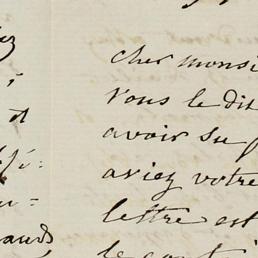 iez
;
et
éfé-
u-
auds
cher monsi
vous le dit
avoir su p
aviez votre
lettre est